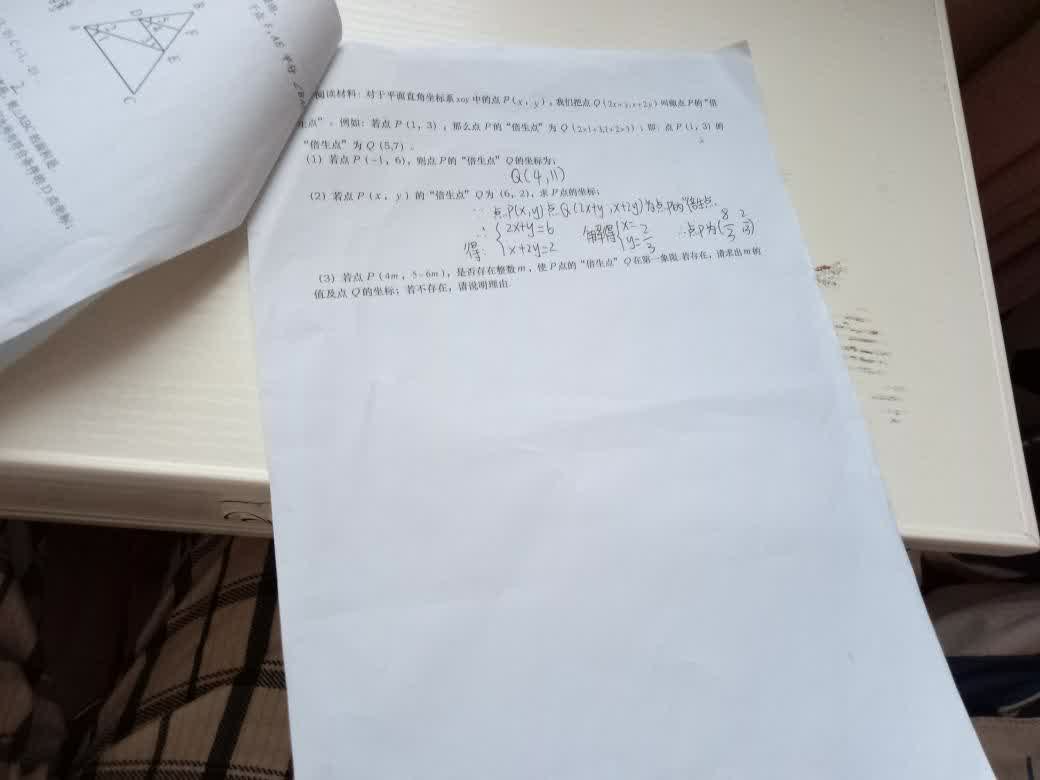 阅读材料：对于平面直角坐标系xoy中的点P(x，y)，我们把点Q(2x+y,x+2y)叫做点P的“倍
生点”。例如：若点P(1，3)，那么点P的“倍生点”为Q(2×1+3,1+2×3)；即：点P(1，3)的
“倍生点”为Q(5,7)．
(1) 若点P(-1，6)，则点P的“倍生点”Q的坐标为；
Q(4,11)
(2) 若点P(x，y)的“倍生点”Q为(6，2)，求P点的坐标；
∵点P(x,y)点Q(2x+y,x+2y)为点P的“倍生点.
∴ 2x+y=6 解得 x= ∴点P为(8/3 2/3)
得: x+2y=2 y= 2/3
(3) 若点P(4m，5-6m)，是否存在整数m，使P点的“倍生点”Q在第一象限.若存在，请求出m的
值及点Q的坐标；若不存在，请说明理由.
A
D
B
F
E
C